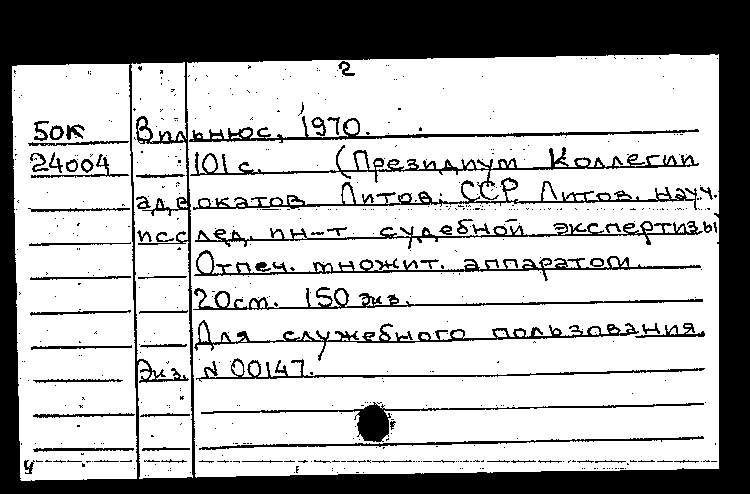 2
50к Вильнюс, 1970.
24004 101 с. (Президиум Коллегии
адвокатов Литов. ССР Литов. науч.
исслед. ин-т судебной экспертизы)
Отпеч. множит. аппаратом.
20 см. 150 экз.
Для служебного пользования.
Экз. № 00147.
ч